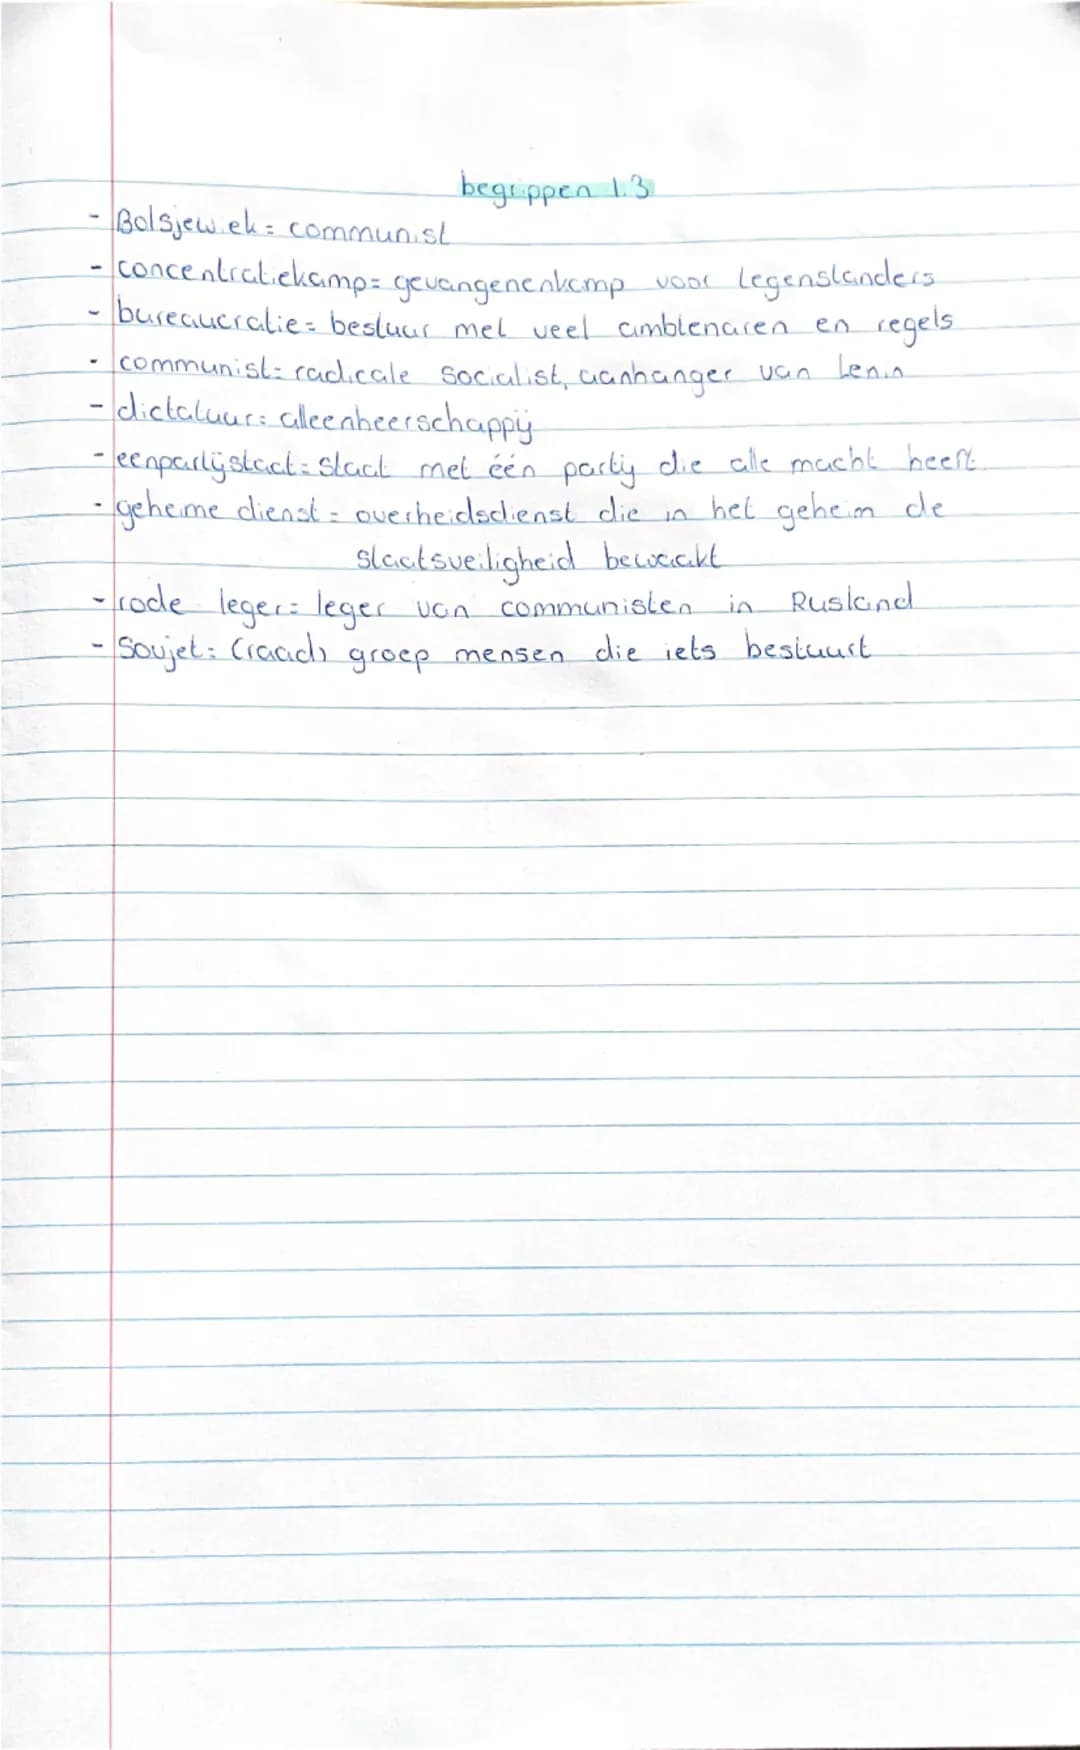 begrippen 1.3
- Bolsjewiek = communist
- concentratiekamp = gevangenenkamp voor tegenstanders
- bureaucratie = bestuur met veel ambtenaren en regels
- communist = radicale socialist, aanhanger van Lenin
- dictatuur = alleenheerschappij
- eenpartijstaat = staat met één partij die alle macht heeft
- geheime dienst = overheidsdienst die in het geheim de
staatsveiligheid bewaakt
- rode leger = leger van communisten in Rusland
- Sovjet = (raad) groep mensen die iets bestuurt